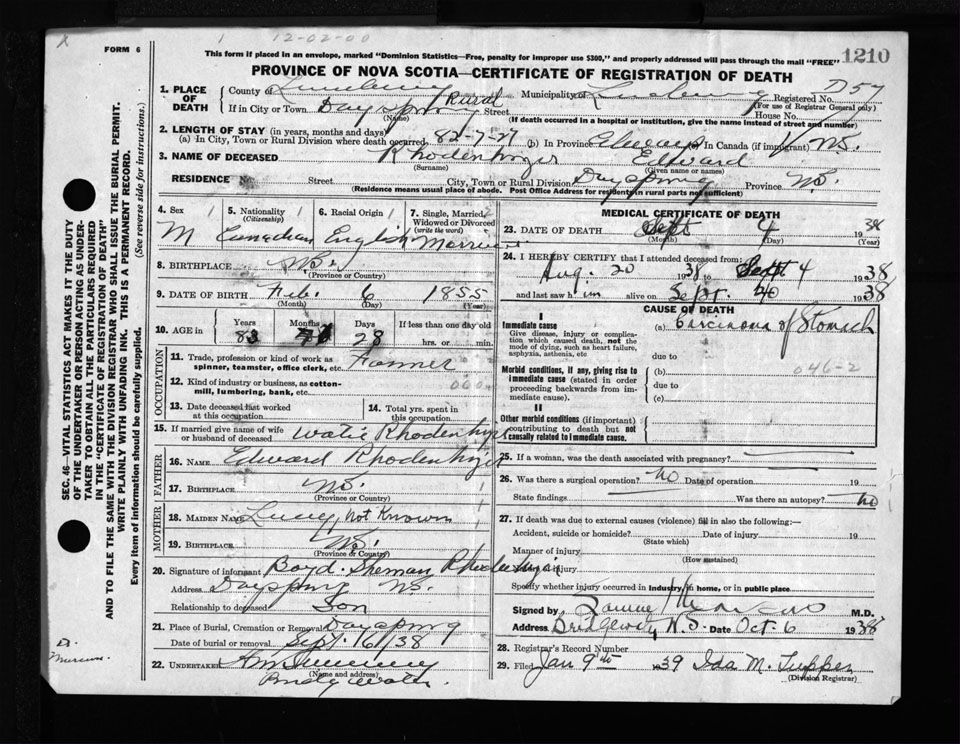 1 12-02-00
FORM 6
This form if placed in an envelope, marked "Dominion Statistics—Free, penalty for improper use $300," and properly addressed will pass through the mail "FREE"
1210
PROVINCE OF NOVA SCOTIA—CERTIFICATE OF REGISTRATION OF DEATH
SEC. 46—VITAL STATISTICS ACT MAKES IT THE DUTY
OF THE UNDERTAKER OR PERSON ACTING AS UNDER-
TAKER TO OBTAIN ALL THE PARTICULARS REQUIRED
IN THE "CERTIFICATE OF REGISTRATION OF DEATH"
AND TO FILE THE SAME WITH THE DIVISION REGISTRAR WHO SHALL ISSUE THE BURIAL PERMIT.
WRITE PLAINLY WITH UNFADING INK. THIS IS A PERMANENT RECORD.
Every item of information should be carefully supplied. (See reverse side for instructions.)
1. PLACE OF DEATH
County of Lunenburg Municipality of Registered No. D57
(For use of Registrar General only)
If in City or Town Dayspring Rural Street House No.
(Name) (If death occurred in a hospital or institution, give the name instead of street and number)
2. LENGTH OF STAY (in years, months and days)
(a) In City, Town or Rural Division where death occurred 82-7-27 (b) In Province (c) In Canada (if immigrant) N.S.
3. NAME OF DECEASED Rhodenhizer Edward
(Surname) (Given name or names)
RESIDENCE No. Street City, Town or Rural Division Dayspring Province N.S.
(Residence means usual place of abode. Post Office Address for residents in rural parts not sufficient)
4. Sex 1 M
5. Nationality 1 (Citizenship) Canadian
6. Racial Origin 1 English
7. Single, Married, Widowed or Divorced (write the word) Married
8. BIRTHPLACE N.S.
(Province or Country)
9. DATE OF BIRTH Feb. 6 1855
(Month) (Day) (Year)
10. AGE in Years Months Days If less than one day old
28 hrs. or min.
OCCUPATION
11. Trade, profession or kind of work as spinner, teamster, office clerk, etc. Farmer
12. Kind of industry or business, as cotton-mill, lumbering, bank, etc. 000
13. Date deceased last worked at this occupation
14. Total yrs. spent in this occupation
15. If married give name of wife or husband of deceased Rhodenhizer
FATHER
16. NAME Edward Rhodenhizer
17. BIRTHPLACE N.S.
(Province or Country)
MOTHER
18. MAIDEN NAME Not Known
19. BIRTHPLACE N.S.
(Province or Country)
20. Signature of informant Boyd Sherman Rhodenhizer
Address Dayspring N.S.
Relationship to deceased Son
21. Place of Burial, Cremation or Removal Dayspring
Date of burial or removal Sept. 6/38
22. UNDERTAKER
(Name and address)
Bridgewater
MEDICAL CERTIFICATE OF DEATH
23. DATE OF DEATH Sept 4 1938
(Month) (Day) (Year)
24. I HEREBY CERTIFY that I attended deceased from:
Aug. 20 1938 to Sept. 4 1938
and last saw him alive on Sept. 1938
CAUSE OF DEATH
I
Immediate cause
Give disease, injury or complication which caused death, not the mode of dying, such as heart failure, asphyxia, asthenia, etc
(a) Carcinoma of Stomach
due to
Morbid conditions, if any, giving rise to immediate cause (stated in order proceeding backwards from immediate cause).
(b) 046-2
due to
(c)
II
Other morbid conditions (if important) contributing to death but not causally related to immediate cause.
25. If a woman, was the death associated with pregnancy?
26. Was there a surgical operation? no Date of operation 19
State findings Was there an autopsy? no
27. If death was due to external causes (violence) fill in also the following:—
Accident, suicide or homicide? Date of injury 19
(State which)
Manner of injury
(How sustained)
Nature of injury
Specify whether injury occurred in industry, in home, or in public place
Signed by M.D.
Address Bridgewater N.S. Date Oct. 6 1938
28. Registrar's Record Number
29. Filed Jan 9th 1939 Ida M. Tupper
(Division Registrar)